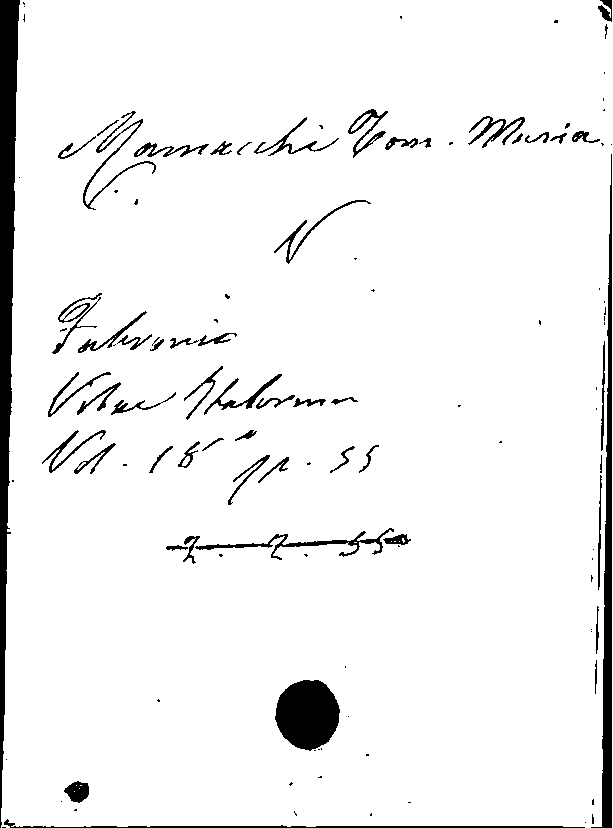 Mamachi Tom. Maria
V.
Fabronio
Vitae Italorum
Vol. 18° pp. 55
Z. Z. 55